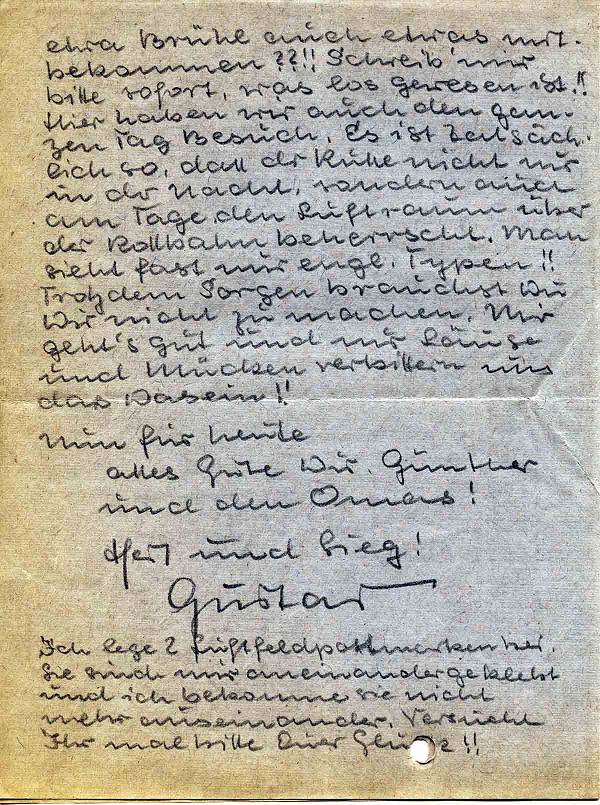 etwa Brühl auch etwas mit-
bekommen??!! Schreib' mir
bitte sofort, was los gewesen ist!!
Hier haben wir auch den gan-
zen Tag Besuch. Es ist tatsäch-
lich so, daß dr Russe nicht nur
in dr Nacht, sondern auch
am Tage den Luftraum über
der Rollbahn beherrscht. Man
sieht fast nur engl. Typen!!
Trotzdem Sorgen brauchst Du
Dir nicht zu machen. Mir
geht's gut und nur Läuse
und Mücken verbittern uns
das Dasein!!
Nun für heute
alles Gute Dir, Günther
und den Omas!
Heil und Sieg!
Gustav
Ich lege 2 Luftfeldpostmarken bei.
Sie sind mir aneinandergeklebt
und ich bekomme sie nicht
mehr auseinander. Versucht
Ihr mal bitte Euer Glück!!